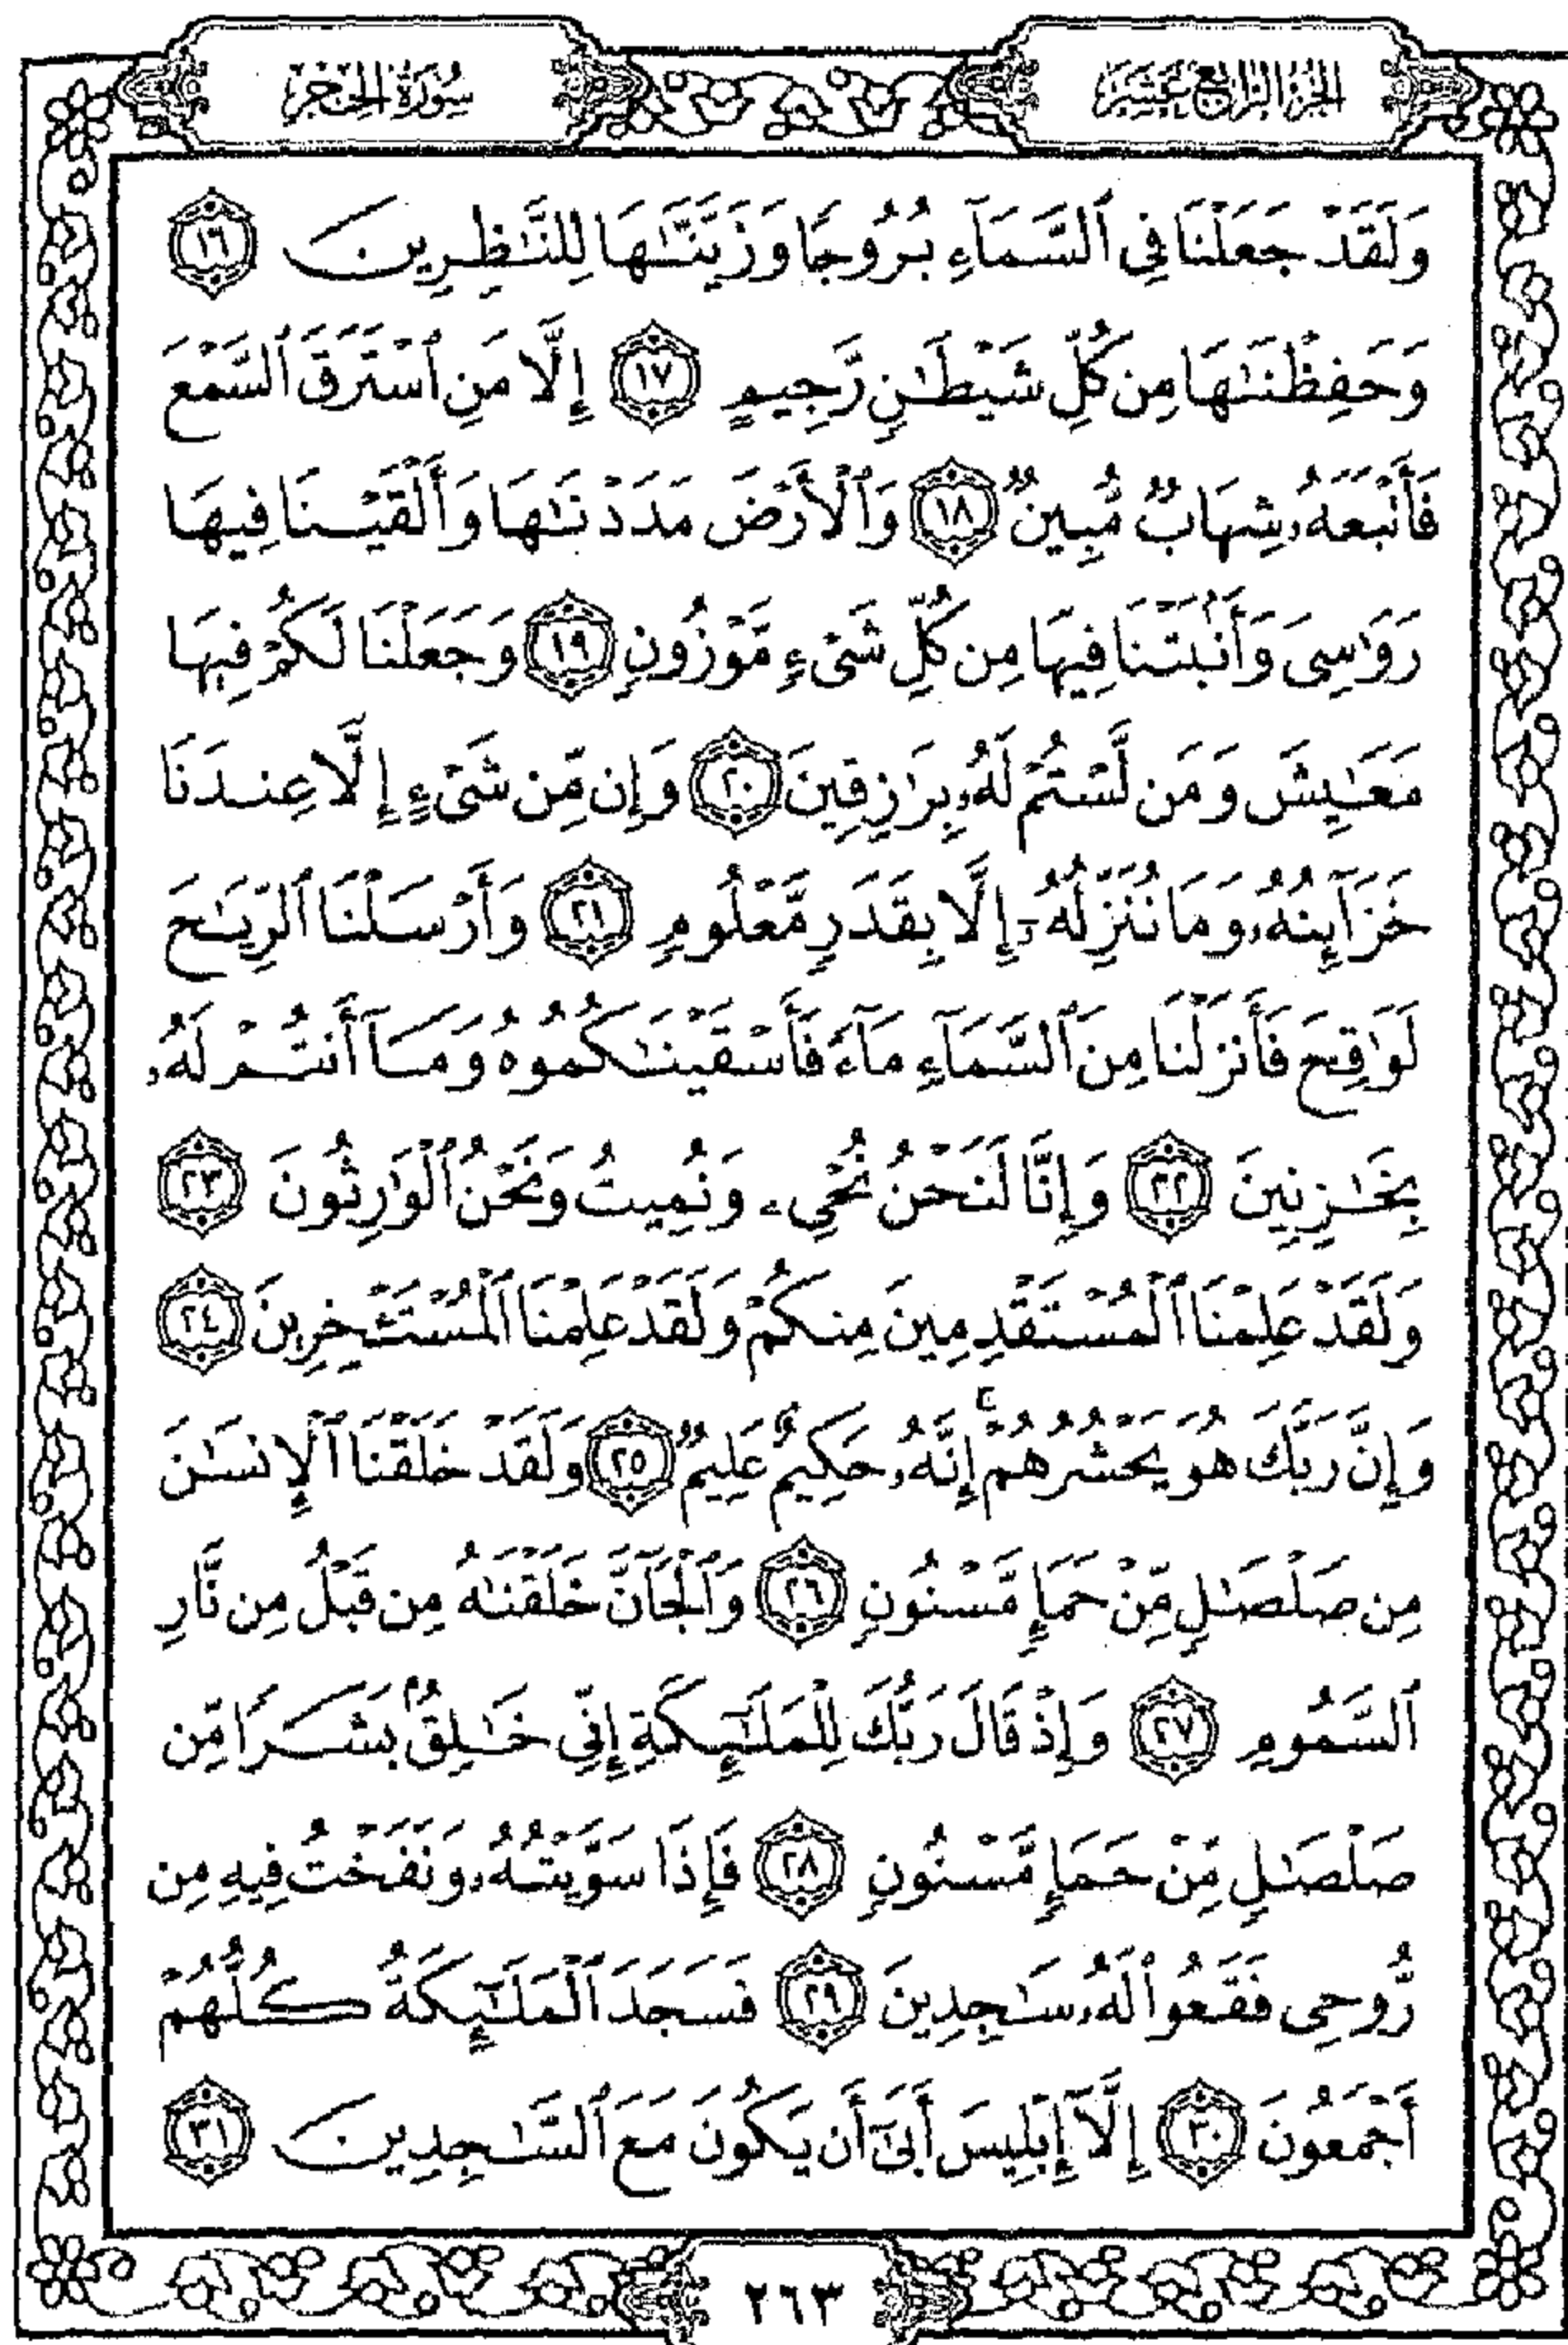 الجزء الرابع عشر
سورة الحجر
وَلَقَدْ جَعَلْنَا فِي ٱلسَّمَآءِ بُرُوجًا وَزَيَّنَّـٰهَا لِلنَّـٰظِرِينَ ١٦
وَحَفِظْنَـٰهَا مِن كُلِّ شَيْطَـٰنٍ رَّجِيمٍ ١٧ إِلَّا مَنِ ٱسْتَرَقَ ٱلسَّمْعَ
فَأَتْبَعَهُۥ شِهَابٌ مُّبِينٌ ١٨ وَٱلْأَرْضَ مَدَدْنَـٰهَا وَأَلْقَيْنَا فِيهَا
رَوَٰسِىَ وَأَنۢبَتْنَا فِيهَا مِن كُلِّ شَىْءٍ مَّوْزُونٍ ١٩ وَجَعَلْنَا لَكُمْ فِيهَا
مَعَـٰيِشَ وَمَن لَّسْتُمْ لَهُۥ بِرَٰزِقِينَ ٢٠ وَإِن مِّن شَىْءٍ إِلَّا عِندَنَا
خَزَآئِنُهُۥ وَمَا نُنَزِّلُهُۥٓ إِلَّا بِقَدَرٍ مَّعْلُومٍ ٢١ وَأَرْسَلْنَا ٱلرِّيَـٰحَ
لَوَٰقِحَ فَأَنزَلْنَا مِنَ ٱلسَّمَآءِ مَآءً فَأَسْقَيْنَـٰكُمُوهُ وَمَآ أَنتُمْ لَهُۥ
بِخَـٰزِنِينَ ٢٢ وَإِنَّا لَنَحْنُ نُحْىِۦ وَنُمِيتُ وَنَحْنُ ٱلْوَٰرِثُونَ ٢٣
وَلَقَدْ عَلِمْنَا ٱلْمُسْتَقْدِمِينَ مِنكُمْ وَلَقَدْ عَلِمْنَا ٱلْمُسْتَـْٔخِرِينَ ٢٤
وَإِنَّ رَبَّكَ هُوَ يَحْشُرُهُمْ ۚ إِنَّهُۥ حَكِيمٌ عَلِيمٌ ٢٥ وَلَقَدْ خَلَقْنَا ٱلْإِنسَـٰنَ
مِن صَلْصَـٰلٍ مِّنْ حَمَإٍ مَّسْنُونٍ ٢٦ وَٱلْجَآنَّ خَلَقْنَـٰهُ مِن قَبْلُ مِن نَّارِ
ٱلسَّمُومِ ٢٧ وَإِذْ قَالَ رَبُّكَ لِلْمَلَـٰٓئِكَةِ إِنِّى خَـٰلِقٌۢ بَشَرًا مِّن
صَلْصَـٰلٍ مِّنْ حَمَإٍ مَّسْنُونٍ ٢٨ فَإِذَا سَوَّيْتُهُۥ وَنَفَخْتُ فِيهِ مِن
رُّوحِى فَقَعُوا۟ لَهُۥ سَـٰجِدِينَ ٢٩ فَسَجَدَ ٱلْمَلَـٰٓئِكَةُ كُلُّهُمْ
أَجْمَعُونَ ٣٠ إِلَّآ إِبْلِيسَ أَبَىٰٓ أَن يَكُونَ مَعَ ٱلسَّـٰجِدِينَ ٣١
٢٦٣